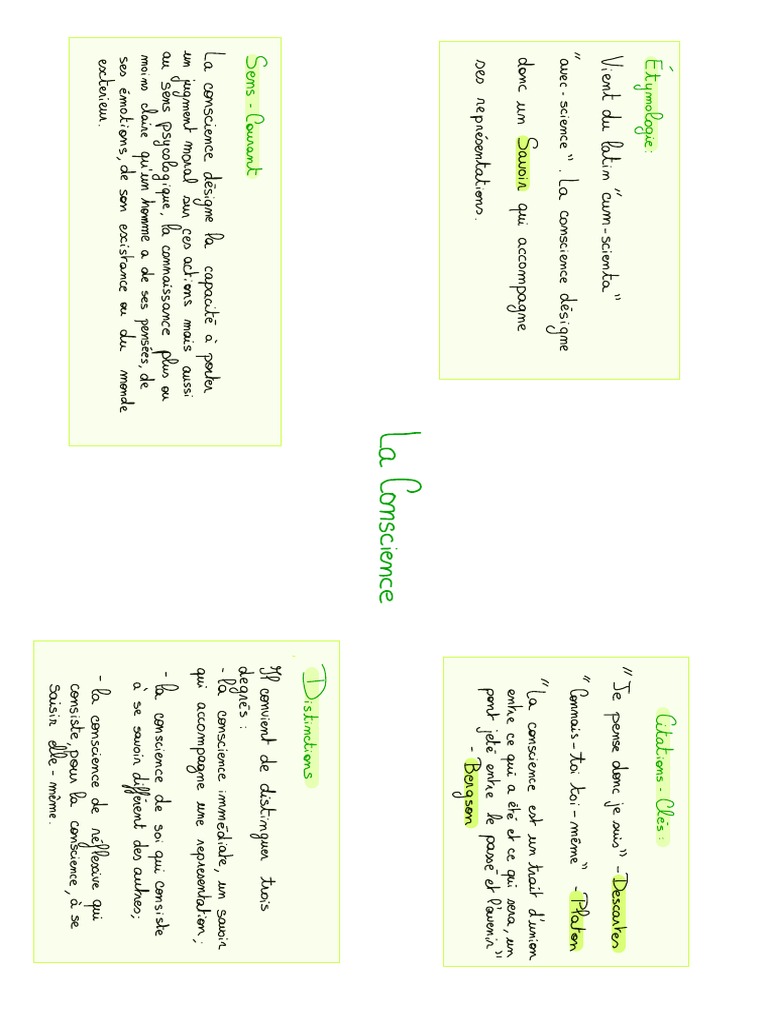 Étymologie:
Vient du latin "cum-scienta"
"avec-science". La conscience désigne
donc un Savoir qui accompagne
ses représentations.
Citations-Clés:
"Je pense donc je suis" - Descartes
"Connais-toi toi-même" - Platon
"La conscience est un trait d'union
entre ce qui a été et ce qui sera, un
pont jeté entre le passé et l'avenir"
- Bergson
La Conscience
Sens-Courant
La conscience désigne la capacité à porter
un jugment moral sur ces actions mais aussi
au sens psycologique, la connaissance plus ou
moins claire qu'un homme a de ses pensées, de
ses émotions, de son existance ou du monde
exterieur.
Distinctions
Il convient de distinguer trois
degrés:
- la conscience immédiate, un savoir
qui accompagne une representation;
- la conscience de soi qui consiste
à se savoir différent des autres;
- la conscience de réflexive qui
consiste, pour la conscience, à se
saisir elle-même.